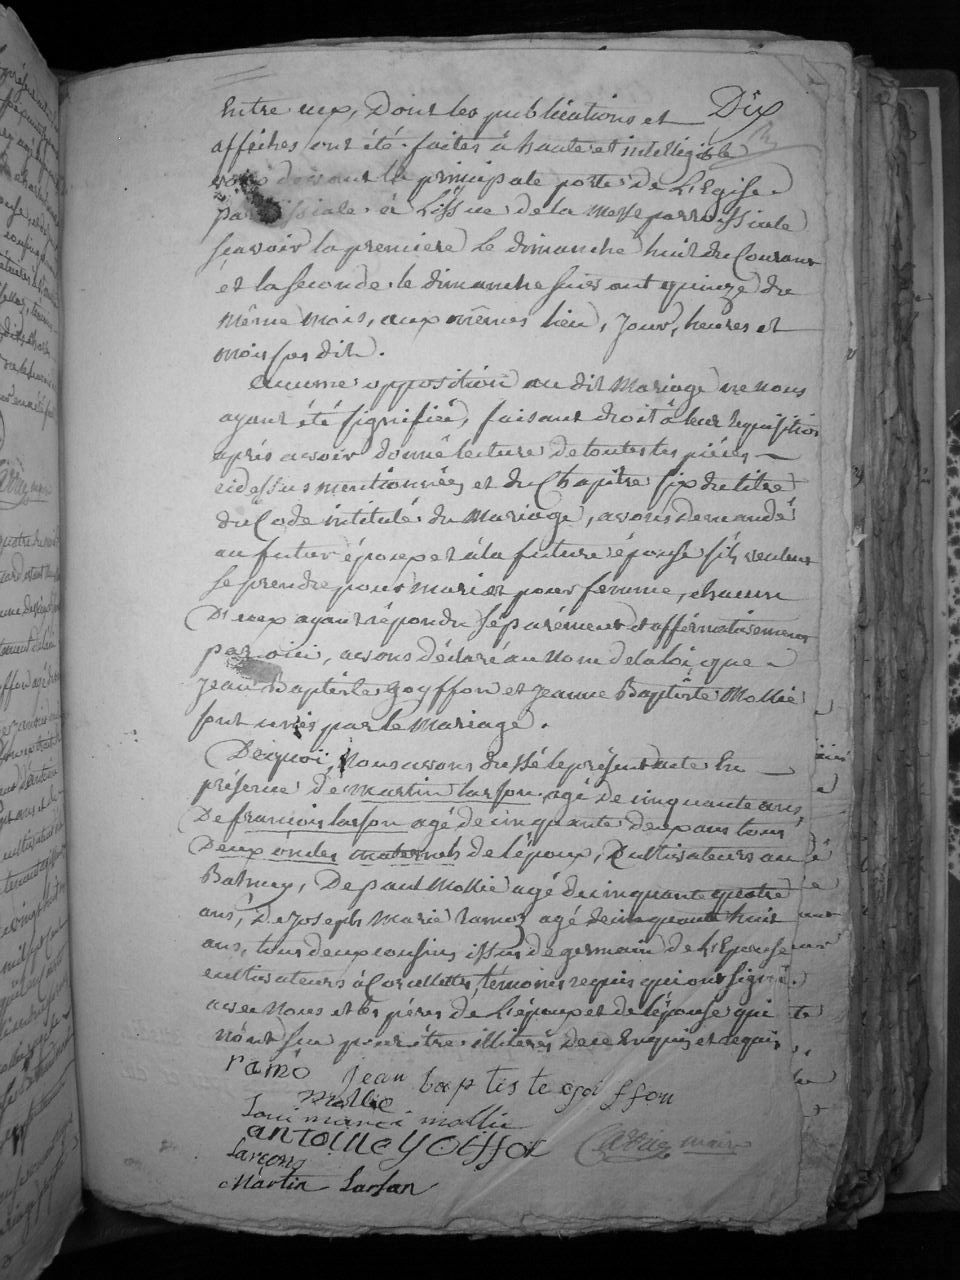 Dix
Entre eux, Dont les publications et
affiches ont été faites à haute et intelligible
devant la principale porte de L'Eglise
paroissiale à L'issue de la Messe parroissiale
scavoir la premiere le dimanche huit du Courant
et la seconde le dimanche suivant quinze du
même mois, aux mêmes lieu, jour, heures et
mois susdits.
Aucune opposition au dit Mariage ne nous
ayant été signifiée, faisant droit à leur requisition
après avoir donné lecture de toutes les pièces
cidessus mentionnées et du Chapitre six du titre
du Code intitulé du Mariage, avons demandé
au futur époux et à la future épouse s'ils veulent
se prendre pour mari et pour femme, chacun
D'eux ayant répondu séparément et affirmativement
par oui, avons déclaré au Nom de la loi que
Jean Baptiste Goyffon et Jeanne Baptiste Mollie
sont unis par le Mariage.
De quoi, Nous avons dressé le présent acte En
présence de Martin Larson agé de cinquante ans,
De françois larson agé de cinquante deux ans tous
Deux oncles maternels de l'époux, Cultivateurs au
De paul Mollie agé de cinquante quatre
ans, De Joseph Marie ramoz agé de cinquante huit
ans, tous deux cousins issus de germain de L'Epouse
cultivateurs à Corcellettes, témoins requis qui ont signé
avec Nous et les pères de L'époux et de l'épouse qui
N'ont su pour être illiterés de ce Enquis et requis
ramo jean baptiste goiffon
Mollie
mollie
antoine yoiffor
mair
Larçons
Martin Larson